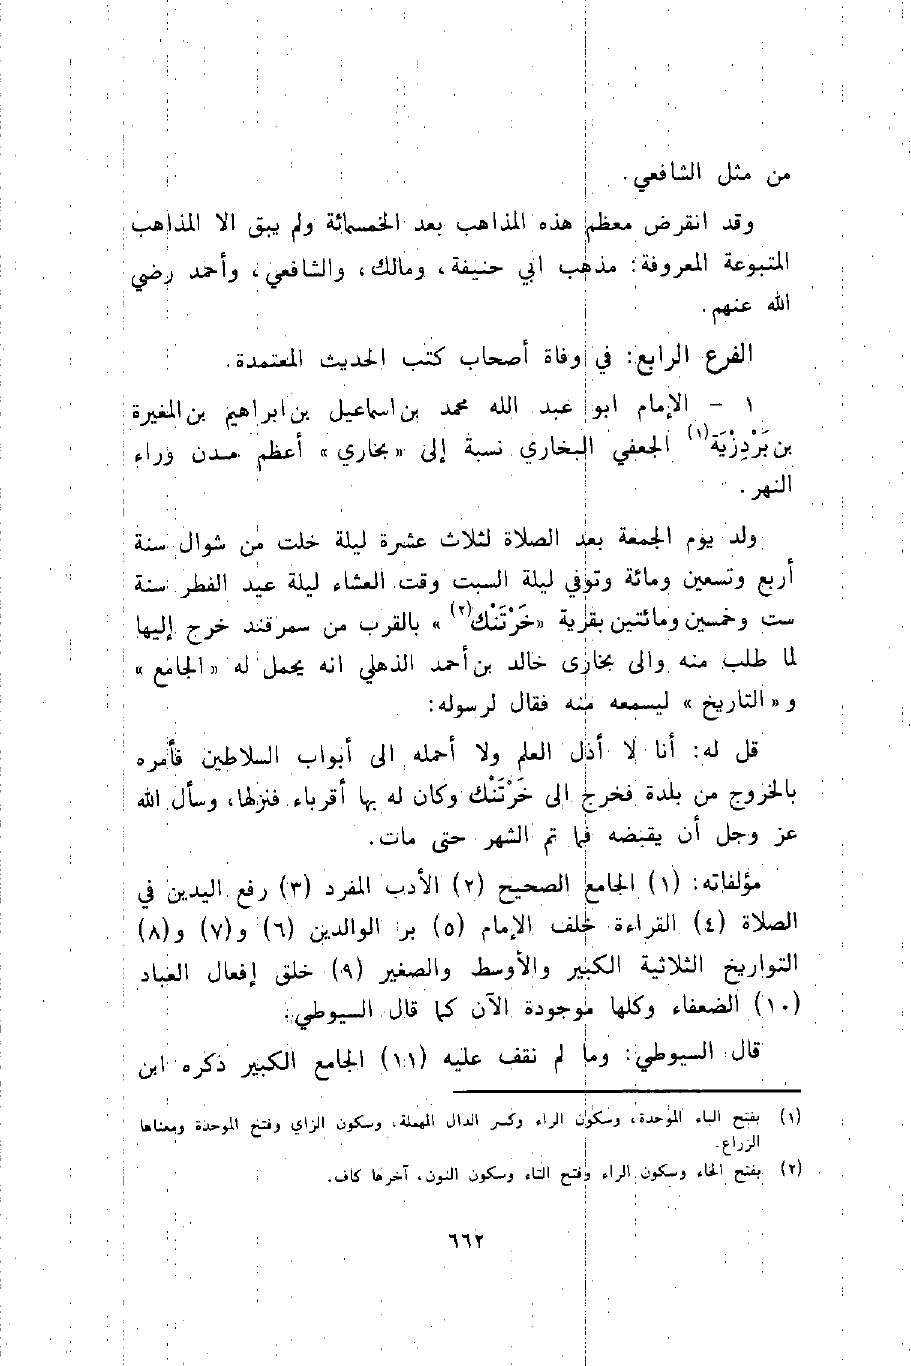 من مثل الشافعي.
وقد انقرض معظم هذه المذاهب بعد الخمسمائة ولم يبق الا المذاهب
المتبوعة المعروفة: مذهب ابي حنيفة، ومالك، والشافعي، وأحمد رضي
الله عنهم.
الفرع الرابع: في وفاة أصحاب كتب الحديث المعتمدة.
١ - الإمام ابو عبد الله محمد بن اسماعيل بن ابراهيم بن المغيرة
بن بَرْدِزْبَة(١) الجعفي البخاري نسبة إلى «بخاري» أعظم مدن وراء
النهر.
ولد يوم الجمعة بعد الصلاة لثلاث عشرة ليلة خلت من شوال سنة
أربع وتسعين ومائة وتوفي ليلة السبت وقت العشاء ليلة عيد الفطر سنة
ست وخمسين ومائتين بقرية «خَرْتَنْك(٢)» بالقرب من سمرقند خرج إليها
لما طلب منه والى بخارى خالد بن أحمد الذهلي انه يحمل له «الجامع»
و«التاريخ» ليسمعه منه فقال لرسوله:
قل له: أنا لا أذل العلم ولا أحمله الى أبواب السلاطين فأمره
بالخروج من بلدة فخرج الى خَرْتَنْك وكان له بها أقرباء فنزلها، وسأل الله
عز وجل أن يقبضه فما تم الشهر حتى مات.
مؤلفاته: (١) الجامع الصحيح (٢) الأدب المفرد (٣) رفع اليدين في
الصلاة (٤) القراءة خلف الإمام (٥) بر الوالدين (٦) و(٧) و(٨)
التواريخ الثلاثية الكبير والأوسط والصغير (٩) خلق إفعال العباد
(١٠) الضعفاء وكلها موجودة الآن كما قال السيوطي.
قال السيوطي: وما لم نقف عليه (١١) الجامع الكبير ذكره ابن
(١) بفتح الباء الموحدة، وسكون الراء وكسر الدال المهملة، وسكون الزاي وفتح الموحدة ومعناها
الزراع.
(٢) بفتح الخاء وسكون الراء وفتح التاء وسكون النون، آخرها كاف.
٦٦٢